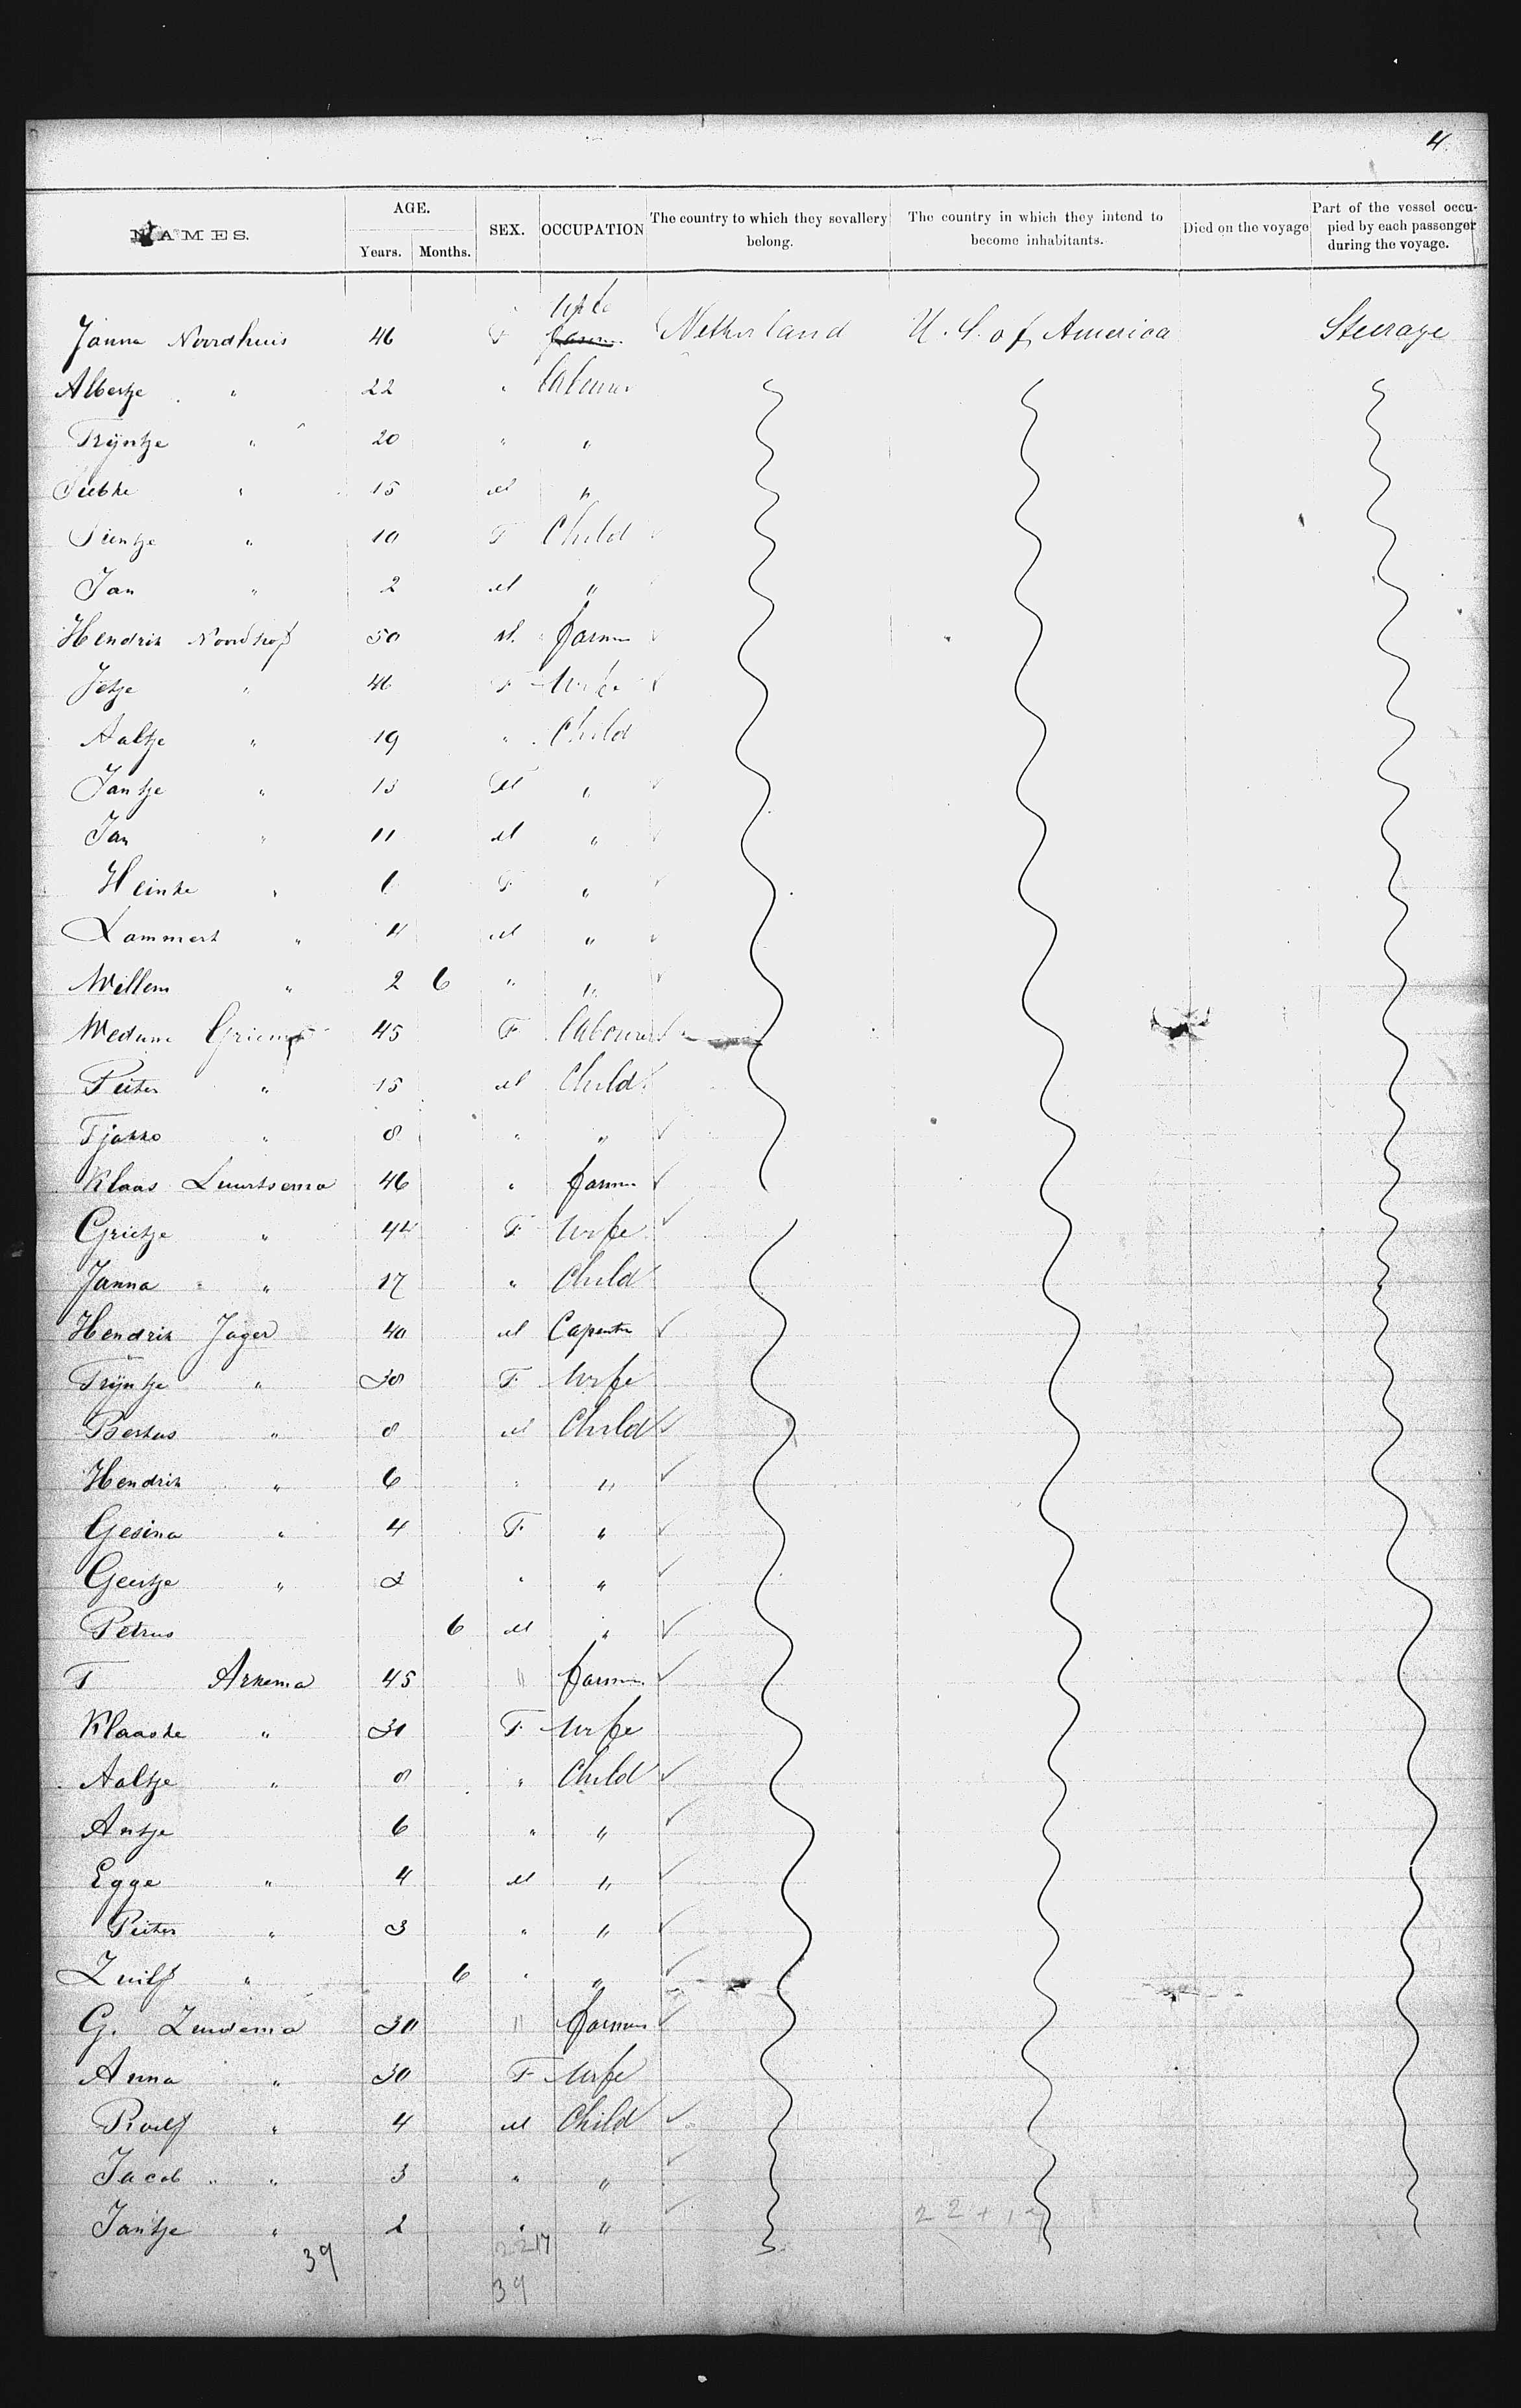 4
NAMES. AGE. Years. Months. SEX. OCCUPATION The country to which they sevallery belong. The country in which they intend to become inhabitants. Died on the voyage Part of the vessel occupied by each passenger during the voyage.
Wife
Janna Noordhuis 46 F farmer Netherland U. S. of America Steerage
Albertje " 22 " labourer
Trÿntje " 20 " "
" 15 M "
Sientje " 10 F Child
Jan " 2 M "
Hendrik Noordhof 50 M. farmer
Jetje " 46 F Wife
Aaltje " 19 " Child
Jantje " 13 "
Jan " 11 M "
Heinke " 6 F "
Lammert " 4 M "
Willem " 2 6 " "
45 F labourer
Pieter " 15 M Child
Tjakko " 8 " "
Klaas Luurtsema 46 " farmer
Grietje " 44 F Wife
Janna " 17 " Child
Hendrik Jager 40 M Capenter
Trÿntje " 38 F Wife
Bertus " 8 M Child
Hendrik " 6 " "
Gesina " 4 F "
Geertje " 2 " "
Petrus 6 M "
T Arkema 45 " farmer
Klaaske " F Wife
Aaltje " 8 " Child
Antje 6 " "
Egge " 4 M "
Pieter " 3 " "
" 6 " "
G. 30 " farmer
Anna " 30 F Wife
Roelf " 4 M Child
Jacob " 3 " "
Jantje " 2 " "
39 22 17
39